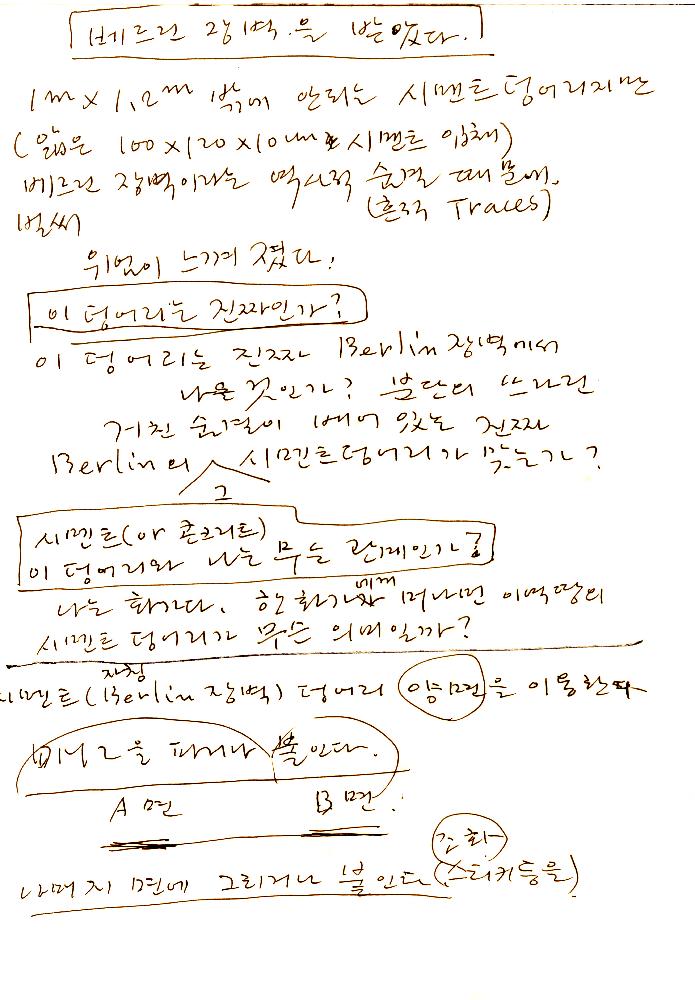 베르린 장벽을 받았다.
1m x 1,2m 밖에 안되는 시멘트덩어리지만
(얇은 100x120x10cm 시멘트 입체)
베르린 장벽이라는 역사적 숨결 때문에.
(흔적 Traces)
벌써
위엄이 느껴 졌다.
이 덩어리는 진짜인가?
이 덩어리는 진짜 Berlin 장벽에서
나온 것인가? 분단의 쓰라린
거친 숨결이 베어 있는 진짜
Berlin의 그 시멘트덩어리가 맞는가?
시멘트(or 콘크리트)
이 덩어리와 나는 무슨 관계인가?
나는 화가다. 한 화가에게 머나먼 이역땅의
시멘트 덩어리가 무슨 의미일까?
자칭
시멘트(Berlin 장벽) 덩어리 양면을 이용한다
파거나 붙인다.
A 면 B 면.
조화
나머지 면에 그리거나 붙인다(스티커등을)